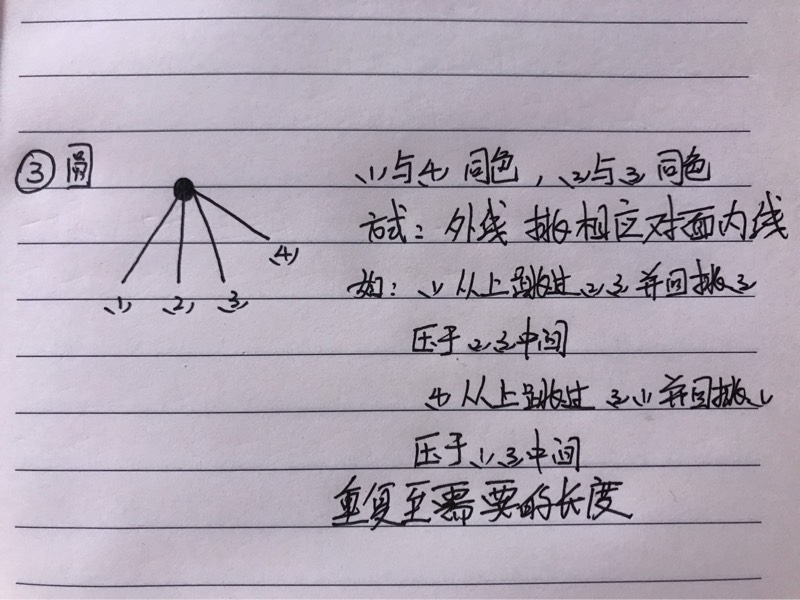 ③ 圆
(1)与(4)同色,(2)与(3)同色
方式:外线挑相应对面内线
如:(1)从上跳过(2)(3)并回挑(3)
压于(2)(3)中间
(4)从上跳过(3)(1)并回挑(1)
压于(1)(3)中间
重复至需要的长度
(1) (2) (3) (4)